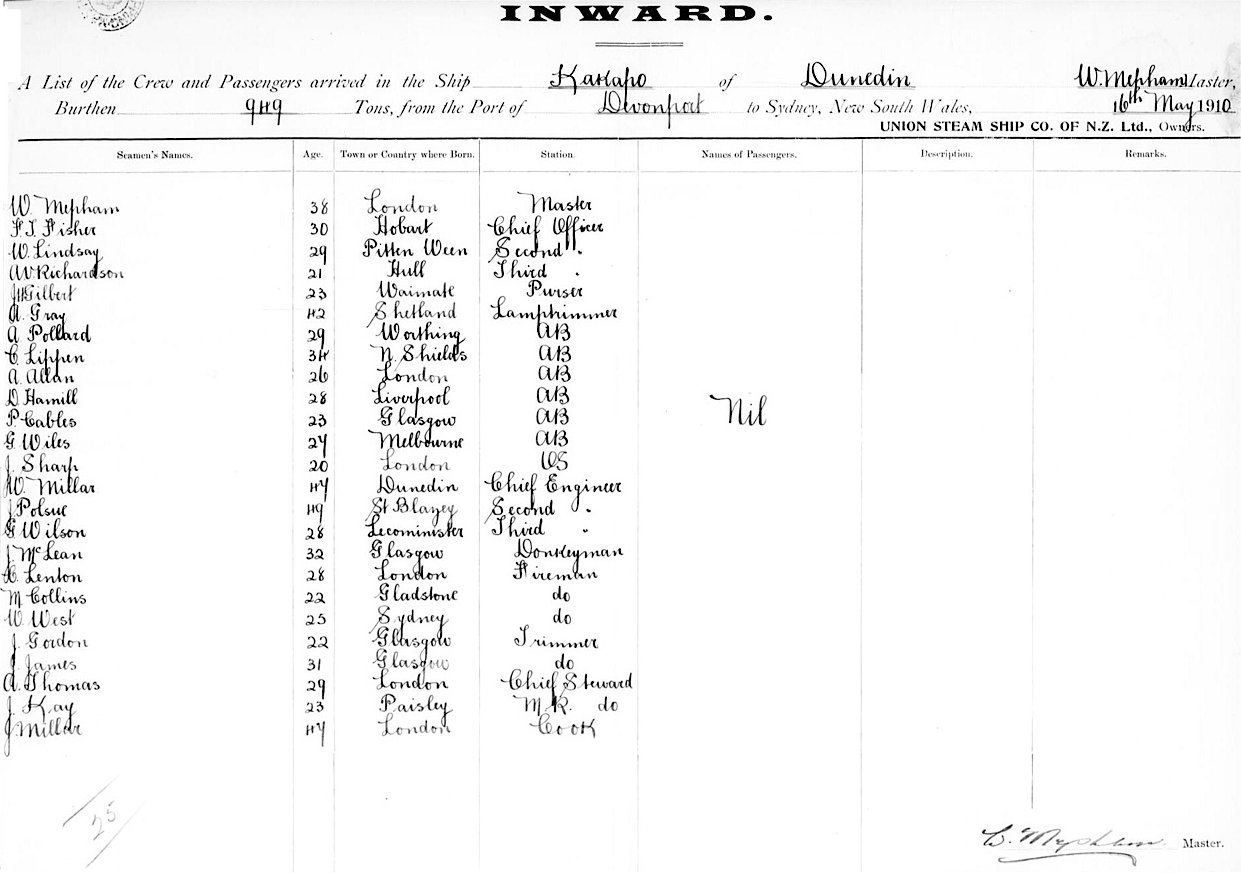 INWARD.
A List of the Crew and Passengers arrived in the Ship Kakapo of Dunedin W. Mepham Master,
Burthen 949 Tons, from the Port of Devonport to Sydney, New South Wales, 16th May 1910
UNION STEAM SHIP CO. OF N.Z. Ltd., Owners.
Seamen's Names. Age. Town or Country where Born. Station. Names of Passengers. Description. Remarks.
W. Mepham 38 London Master
F. J. Fisher 30 Hobart Chief Officer
W. Lindsay 29 Pitten Ween Second "
A V Richardson 21 Hull Third "
J H Gilbert 23 Waimate Purser
A. Gray 42 Shetland Lamptrimmer
A Pollard 29 Worthing AB
C. Lippen 34 N. Shields AB
A. Allan 26 London AB
D Hamill 28 Liverpool AB
Nil
P. Cables 23 Glasgow AB
G. Wiles 27 Melbourne AB
J. Sharp 20 London OS
W. Millar 47 Dunedin Chief Engineer
J Polsue 49 St Blazey Second "
G Wilson 28 Lecominister Third "
J. McLean 32 Glasgow Donkeyman
Lenton 28 London Fireman
M Collins 22 Gladstone do
W. West 25 Sydney do
J. Gordon 22 Glasgow Trimmer
J. James 31 Glasgow do
A. Thomas 29 London Chief Steward
J. Kay 23 Paisley M.R. do
J. Millar 47 London Cook
25
W. Mepham Master.